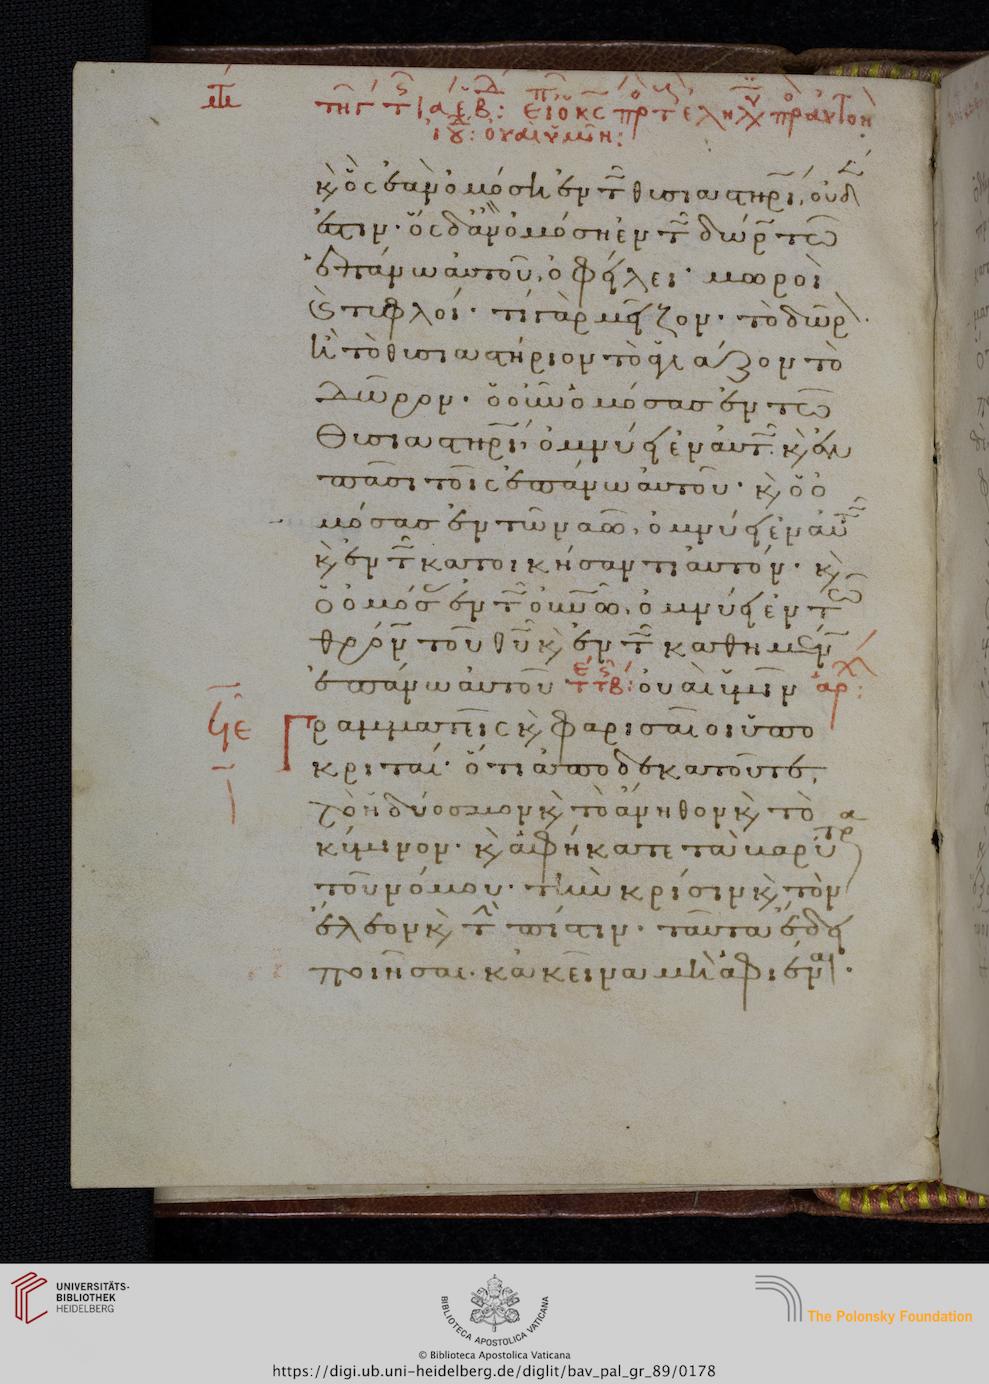 κ ὃς ἐὰν ὀμόσῃ ἐν τ θυσιαστηρί, οὐδ
ἐστιν· ὃς δ ἂν ὀμόση ἐν τ δώρ τῶ
ἐπάνω αὐτοῦ, ὀφείλει· μωροὶ
κ τυφλοί· τί γὰρ μεῖζον· τὸ δῶρ·
ἢ τὸ θυσιαστήριον τὸ ἁγιάζον τὸ
δῶρον· ὁ οὖν ὀμόσας ἐν τῶ
θυσιαστηρί, ὀμνύει ἐν αὐτ κ ἐν
πᾶσι τοῖς ἐπάνω αὐτοῦ· κ ὁ ὀ
μόσας ἐν τῶ ναῶ, ὀμνύει ἐν αὐτ
κ ἐν τ κατοικήσαντι αὐτόν· κ
ὁ ὀμόσ ἐν τ οὐνῶ, ὀμνύει ἐν τῶ
θρόν τοῦ θυ κ ἐν τ καθημέν
ἐπάνω αὐτοῦ οὐαὶ ὑμῖν ἀρχ:
Γραμματεῖς κ φαρισαῖοι ὑπο
κριταί· ὅτι ἀποδεκατοῦτε,
τὸ ἡδύοσμον κ τὸ ἄνηθον κ τὸ
κύμινον· κ ἀφήκατε τὰ βαρύτρα
τοῦ νόμου· τὴν κρίσιν κ τὸν
ἔλεον κ τ πίστιν· ταῦτα ἔδει
ποιῆσαι· κἀκεῖνα μὴ ἀφιέναι·
UNIVERSITÄTS-
BIBLIOTHEK
HEIDELBERG
BIBLIOTECA APOSTOLICA VATICANA
The Polonsky Foundation
© Biblioteca Apostolica Vaticana
https://digi.ub.uni-heidelberg.de/diglit/bav_pal_gr_89/0178